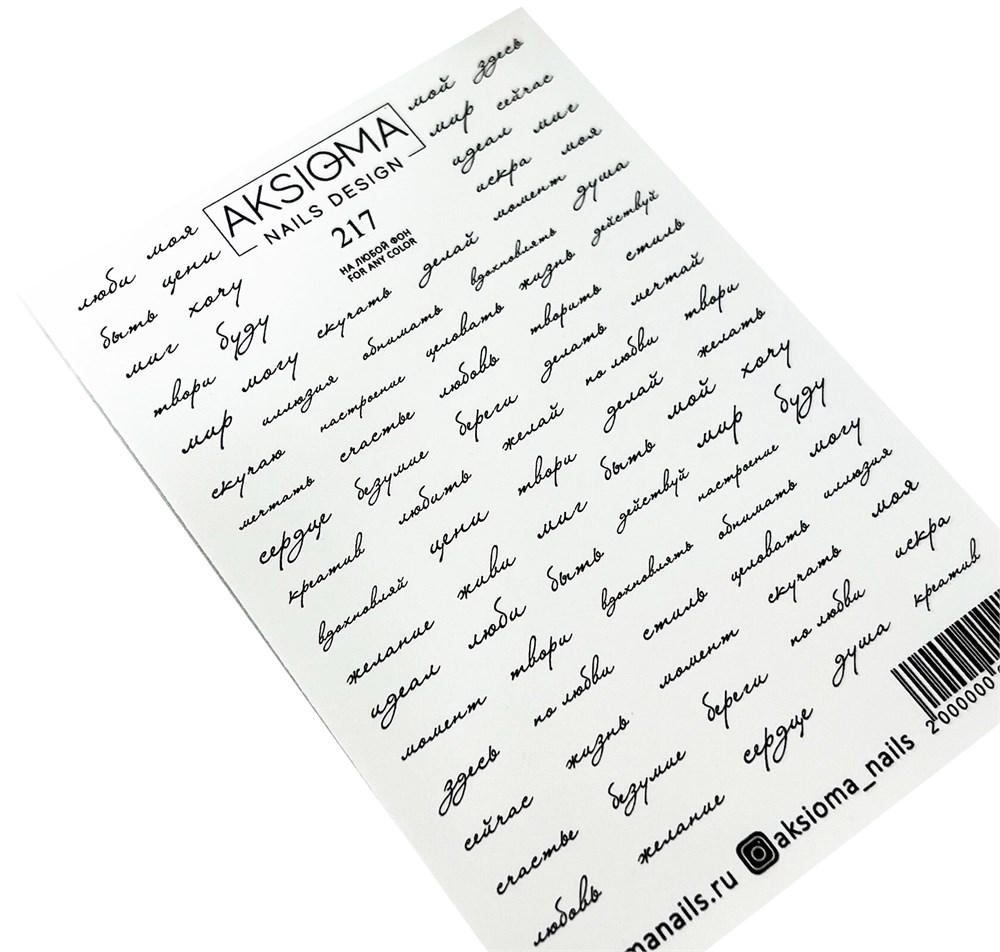 люби моя мой здесь
быть цени мир сейчас
миг хочу идеал миг
твори буду искра моя
AKSIOMA
NAILS DESIGN
217
НА ЛЮБОЙ ФОН
FOR ANY COLOR
мир могу скучать делай момент душа
скучаю иллюзия обнимать вдохновлять действуй
мечтать настроение целовать жизнь стиль
сердце счастье любовь творить мечтай
креатив безумие береги делать твори
вдохновляй любить желай по любви желать
желание цени твори делай мой хочу
идеал живи миг быть мир буду
момент люби быть действуй настроение могу
здесь твори вдохновлять обнимать иллюзия
сейчас по любви стиль целовать моя
счастье жизнь момент скучать искра
любовь безумие береги по любви креатив
желание сердце душа
manails.ru aksioma_nails
2 000000